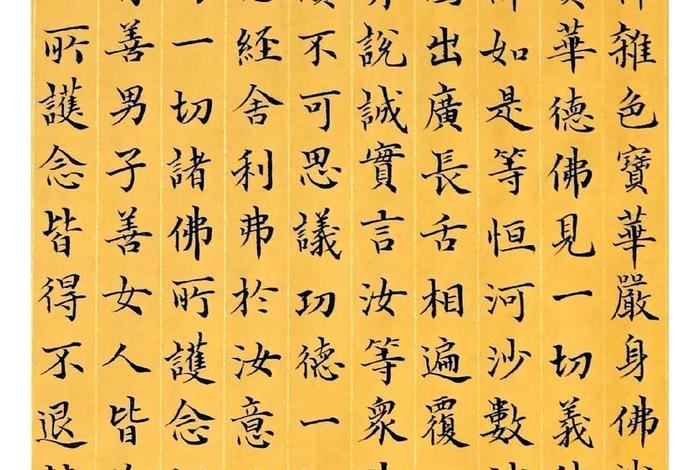 雜色寶華嚴身佛
華德佛見一切義
如是等恒河沙數
出廣長舌相遍覆
說誠實言汝等眾
不可思議功德一
經舍利弗於汝意
一切諸佛所護念
善男子善女人皆
所護念皆得不退